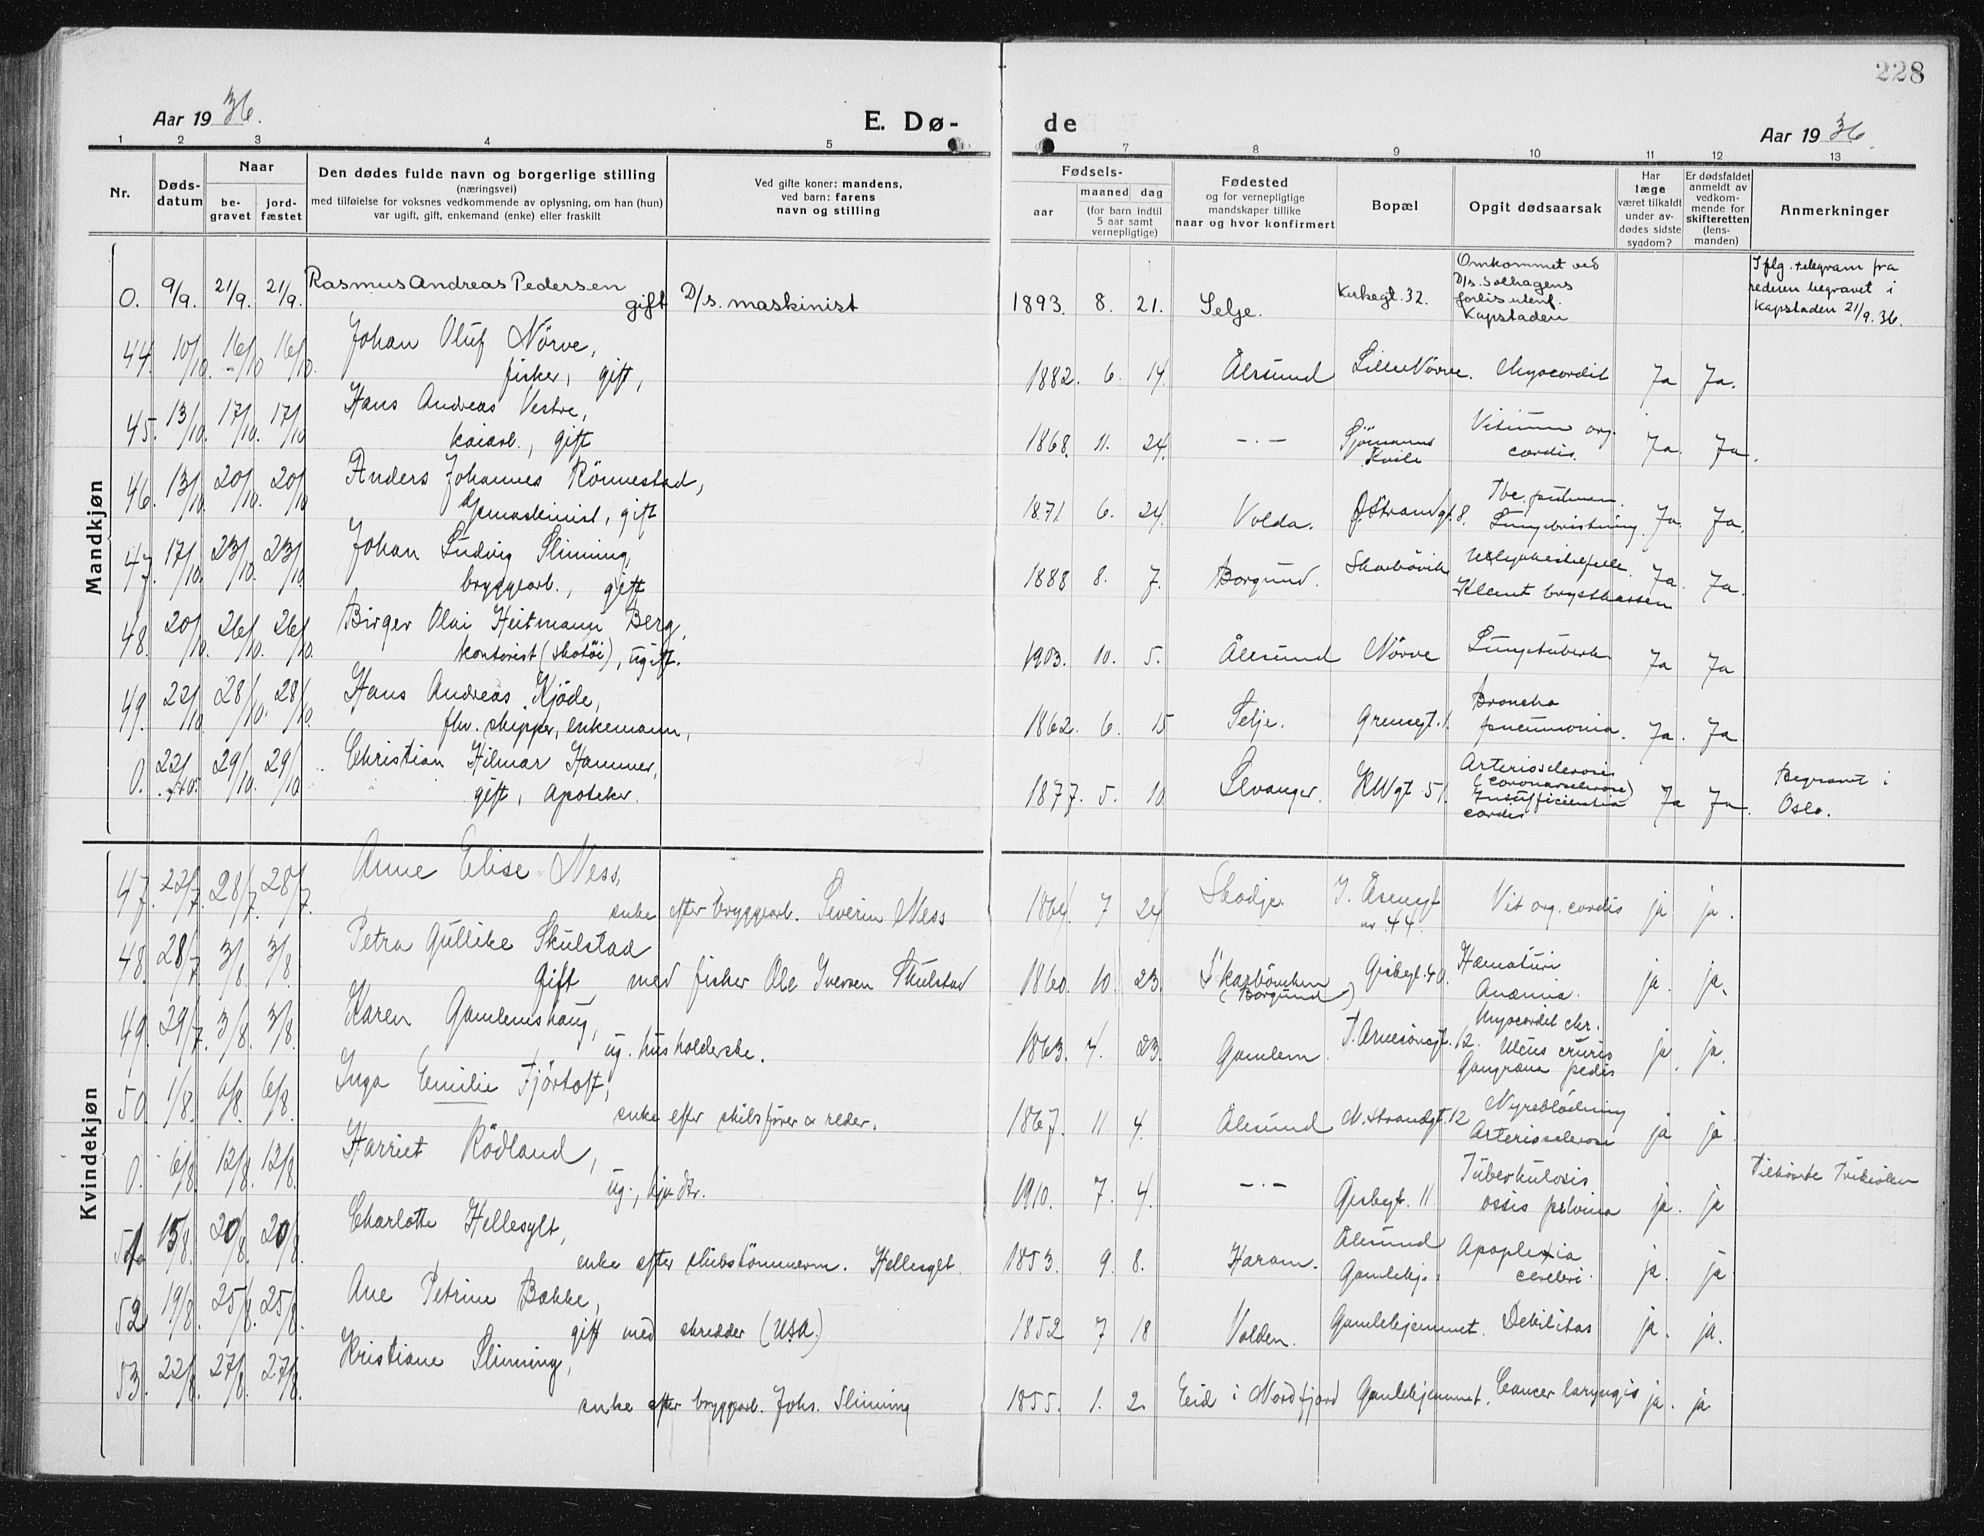 228
Aar 1936.
E. Dø-
de
Aar 1936.
1 2 3 4 5 7 8 9 10 11 12 13
Nr.
Døds-
datum
Naar
be-
gravet
jord-
fæstet
Den dødes fulde navn og borgerlige stilling
(næringsvei)
med tilføielse for voksnes vedkommende av oplysning, om han (hun)
var ugift, gift, enkemand (enke) eller fraskilt
Ved gifte koner: mandens,
ved barn: farens
navn og stilling
Fødsels-
aar
maaned dag
(for barn indtil
5 aar samt
vernepligtige)
Fødested
og for vernepligtige
mandskaper tillike
naar og hvor konfirmert
Bopæl
Opgit dødsaarsak
Har
læge
været tilkaldt
under av-
dødes sidste
sygdom?
Er dødsfaldet
anmeldt av
vedkom-
mende for
skifteretten
(lens-
manden)
Anmerkninger
Mandkjøn
0. 9/9. 21/9. 21/9. Rasmus Andreas Pedersen
gift D/s. maskinist
1893. 8. 21. Selje. Kirkegt. 32.
Omkommet ved
D/s. Solhagens
forlis utenf.
Kapstaden
Iflg. telegram fra
rederen begravet i
Kapstaden 21/9. 36.
44. 10/10. 16/10 16/10. Johan Oluf Nörve,
fisker, gift,
1882. 6. 14. Ålesund Lille Nörve. Myocardit Ja Ja.
45. 13/10. 17/10. 17/10 Hans Andreas Vestre,
kaiarb., gift
1868. 11. 24. -"- Sjömanns
Kvile
Vitium org.
cordis. Ja. Ja.
46. 13/10. 20/10. 20/10 Anders Johannes Rönnestad,
D/smaskinist, gift
1871. 6. 24. Volda. Ø. Strandgt. 8.
Tbc. pulmon.
Ja. Ja.
47. 17/10. 23/10. 23/10. Johan Ludvig Slinning,
bryggearb., gift
1888 8. 7. Borgund. Skarbövik
Ulykkestilfelle.
Klemt brystkassen Ja. Ja.
48. 20/10. 26/10. 26/10. Birger Olai Heitmann Berg,
kontorist (skotöi), ugift.
1903. 10. 5. Ålesund Nörve Lungetuberk. Ja Ja
49. 22/10 28/10. 28/10. Hans Andreas Kjöde,
fhv. skipper, enkemann,
1862. 6. 15 Selje. Grensegt. 1.
Broncho
pneumonia. Ja. Ja
0. 22/10. 29/10. 29/10 Christian Hilmar Hammer,
gift, Apoteker.
1877. 5. 10 Levanger. KWgt. 51.
Arteriosclerosis
(coronarsclerose)
Insufficientia
cordis
Ja Ja.
Begravet i
Oslo.
Kvindekjøn
47. 22/7. 28/7. 28/7. Anne Elise Ness,
enke efter bryggearb. Severin Ness
1864. 7 24 Skodje. I. Åsengt
nr. 44.
Vit org. cordis ja ja.
48. 28/7 3/8 3/8. Petra Gullike Skulstad
Gift med fisker Ole Iversen Skulstad
1860. 10. 23. Skarböviken
(Borgund) Gisbgt. 40.
Hæmaturi
Anæmia. ja. ja.
49. 29/7. 3/8. 3/8. Karen Gamlemshaug,
ug. husholderske.
1863. 4. 23. Gamlem J. Arnesönsgt. 12.
Myocardit chr.
Ulcus cruris
Gangræna pedis
ja. ja.
50. 1/8. 6/8. 6/8. Inga Emilie Fjörtoft,
enke efter skibsfører & reder.
1867. 11. 4. Ålesund N. Strandgt. 12
Nyreblödning
Arteriosclerose ja ja
0. 6/8. 12/8. 12/8. Harriet Rödland,
ug., hjv. dtr.
1910. 7. 4. -"- Gisbegt. 11.
Tuberkulosis
ossis pelvina ja. ja
Tilhørte Frikirken
51 15/8. 20/8. 20/8. Charlotte Hellesylt,
enke efter skibstömmerm. Hellesylt.
1853. 9. 8. Haram. Ålesund
Gamlehj.
Apoplexia
cerebri. ja. ja
52 19/8. 25/8. 25/8. Ane Petrine Bakke,
gift med skredder (USA.)
1852 7 18 Volden. Gamlehjemmet. Debilitas ja. ja.
53. 22/8. 27/8. 27/8. Kristiane Slinning,
enke efter bryggearb. Johs. Slinning
1855. 1. 2. Eid i Nordfjord Gamlehjemmet. Cancer laryngis ja. ja